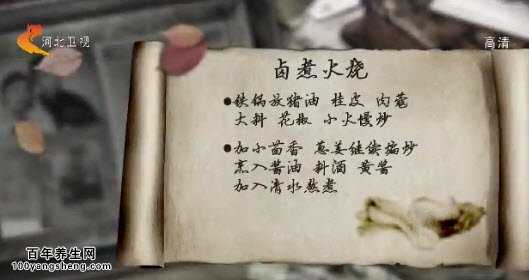 河北卫视
高清
卤煮火烧
●铁锅放猪油 桂皮 肉蔻
大料 花椒 小火慢炒
●加小茴香 葱姜继续煸炒
烹入酱油 料酒 黄酱
加入清水熬煮
百年养生网
100yangsheng.com